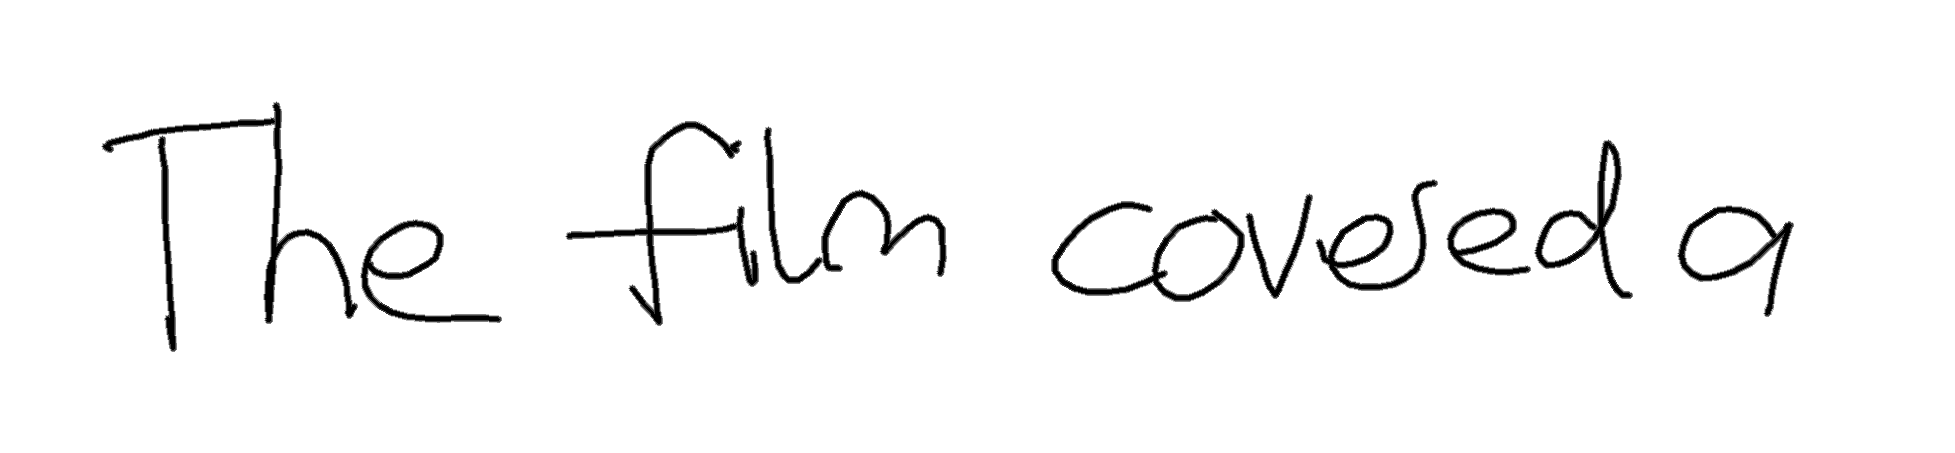 The film covered a